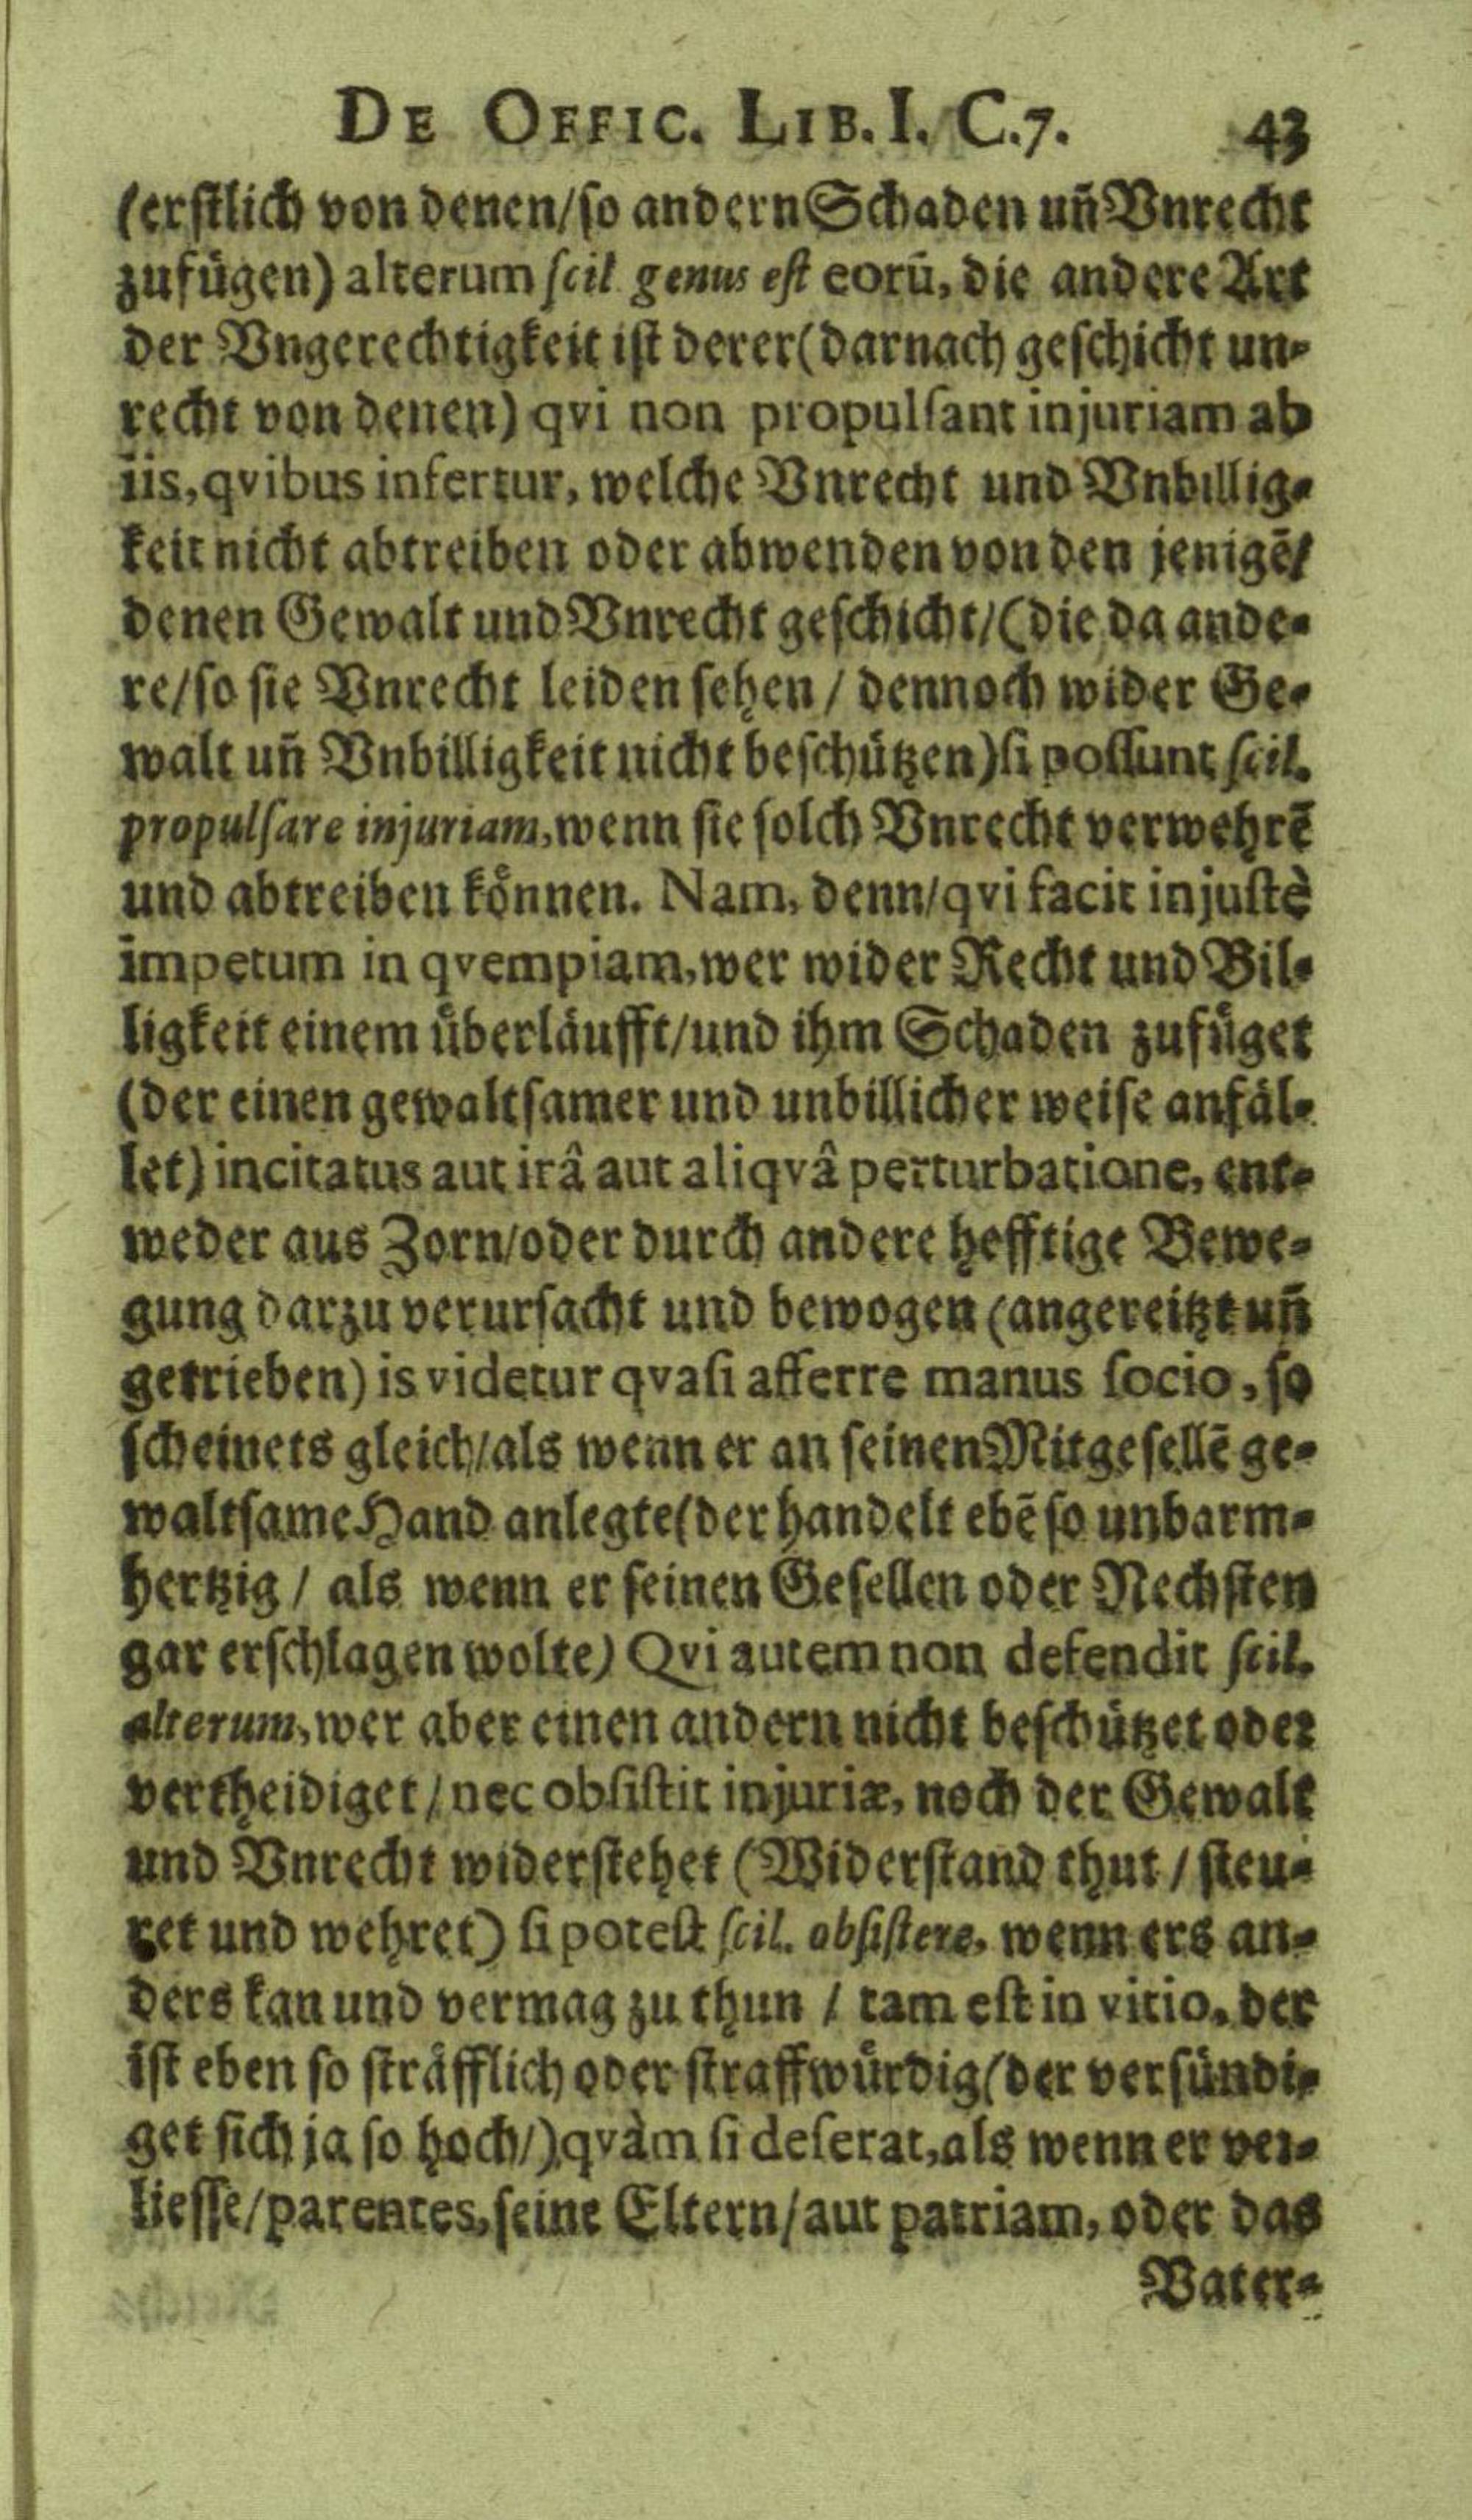 DE OFFIC. LIB. I. C.7. 43
(erstlich von denen/so andern Schaden uñ Vnrecht
zufügen) alterum scil. genus est eorũ, die andere Art
der Vngerechtigkeit ist derer(darnach geschicht un-
recht von denen) qvi non propulsant injuriam ab
iis, qvibus infertur, welche Vnrecht und Vnbillig-
keit nicht abtreiben oder abwenden von den jenigẽ/
denen Gewalt und Vnrecht geschicht/(die da ande-
re/so sie Vnrecht leiden sehen / dennoch wider Ge-
walt uñ Vnbilligkeit nicht beschützen)si possunt scil.
propulsare injuriam, wenn sie solch Vnrecht verwehrẽ
und abtreiben können. Nam, denn/qvi facit injustè
impetum in qvempiam, wer wider Recht und Bil-
ligkeit einem überläufft/und ihm Schaden zufüget
(der einen gewaltsamer und unbillicher weise anfäl-
let) incitatus aut irâ aut aliqvâ perturbatione, ent-
weder aus Zorn/oder durch andere hefftige Bewe-
gung darzu verursacht und bewogen (angereitzt uñ
getrieben) is videtur qvasi afferre manus socio, so
scheinets gleich/als wenn er an seinen Mitgesellẽ ge-
waltsame Hand anlegte(der handelt ebẽ so unbarm-
hertzig / als wenn er seinen Gesellen oder Nechsten
gar erschlagen wolte) Qvi autem non defendit scil.
alterum, wer aber einen andern nicht beschützet oder
vertheidiget / nec obsistit injuriæ, noch der Gewalt
und Vnrecht widerstehet (Widerstand thut / steu-
ret und wehret) si potest scil. obsistere, wenn ers an-
ders kan und vermag zu thun / tam est in vitio, der
ist eben so sträfflich oder straffwürdig(der versündi-
get sich ja so hoch/) qvàm si deserat, als wenn er ver-
liesse/parentes, seine Eltern/aut patriam, oder das
Vater-